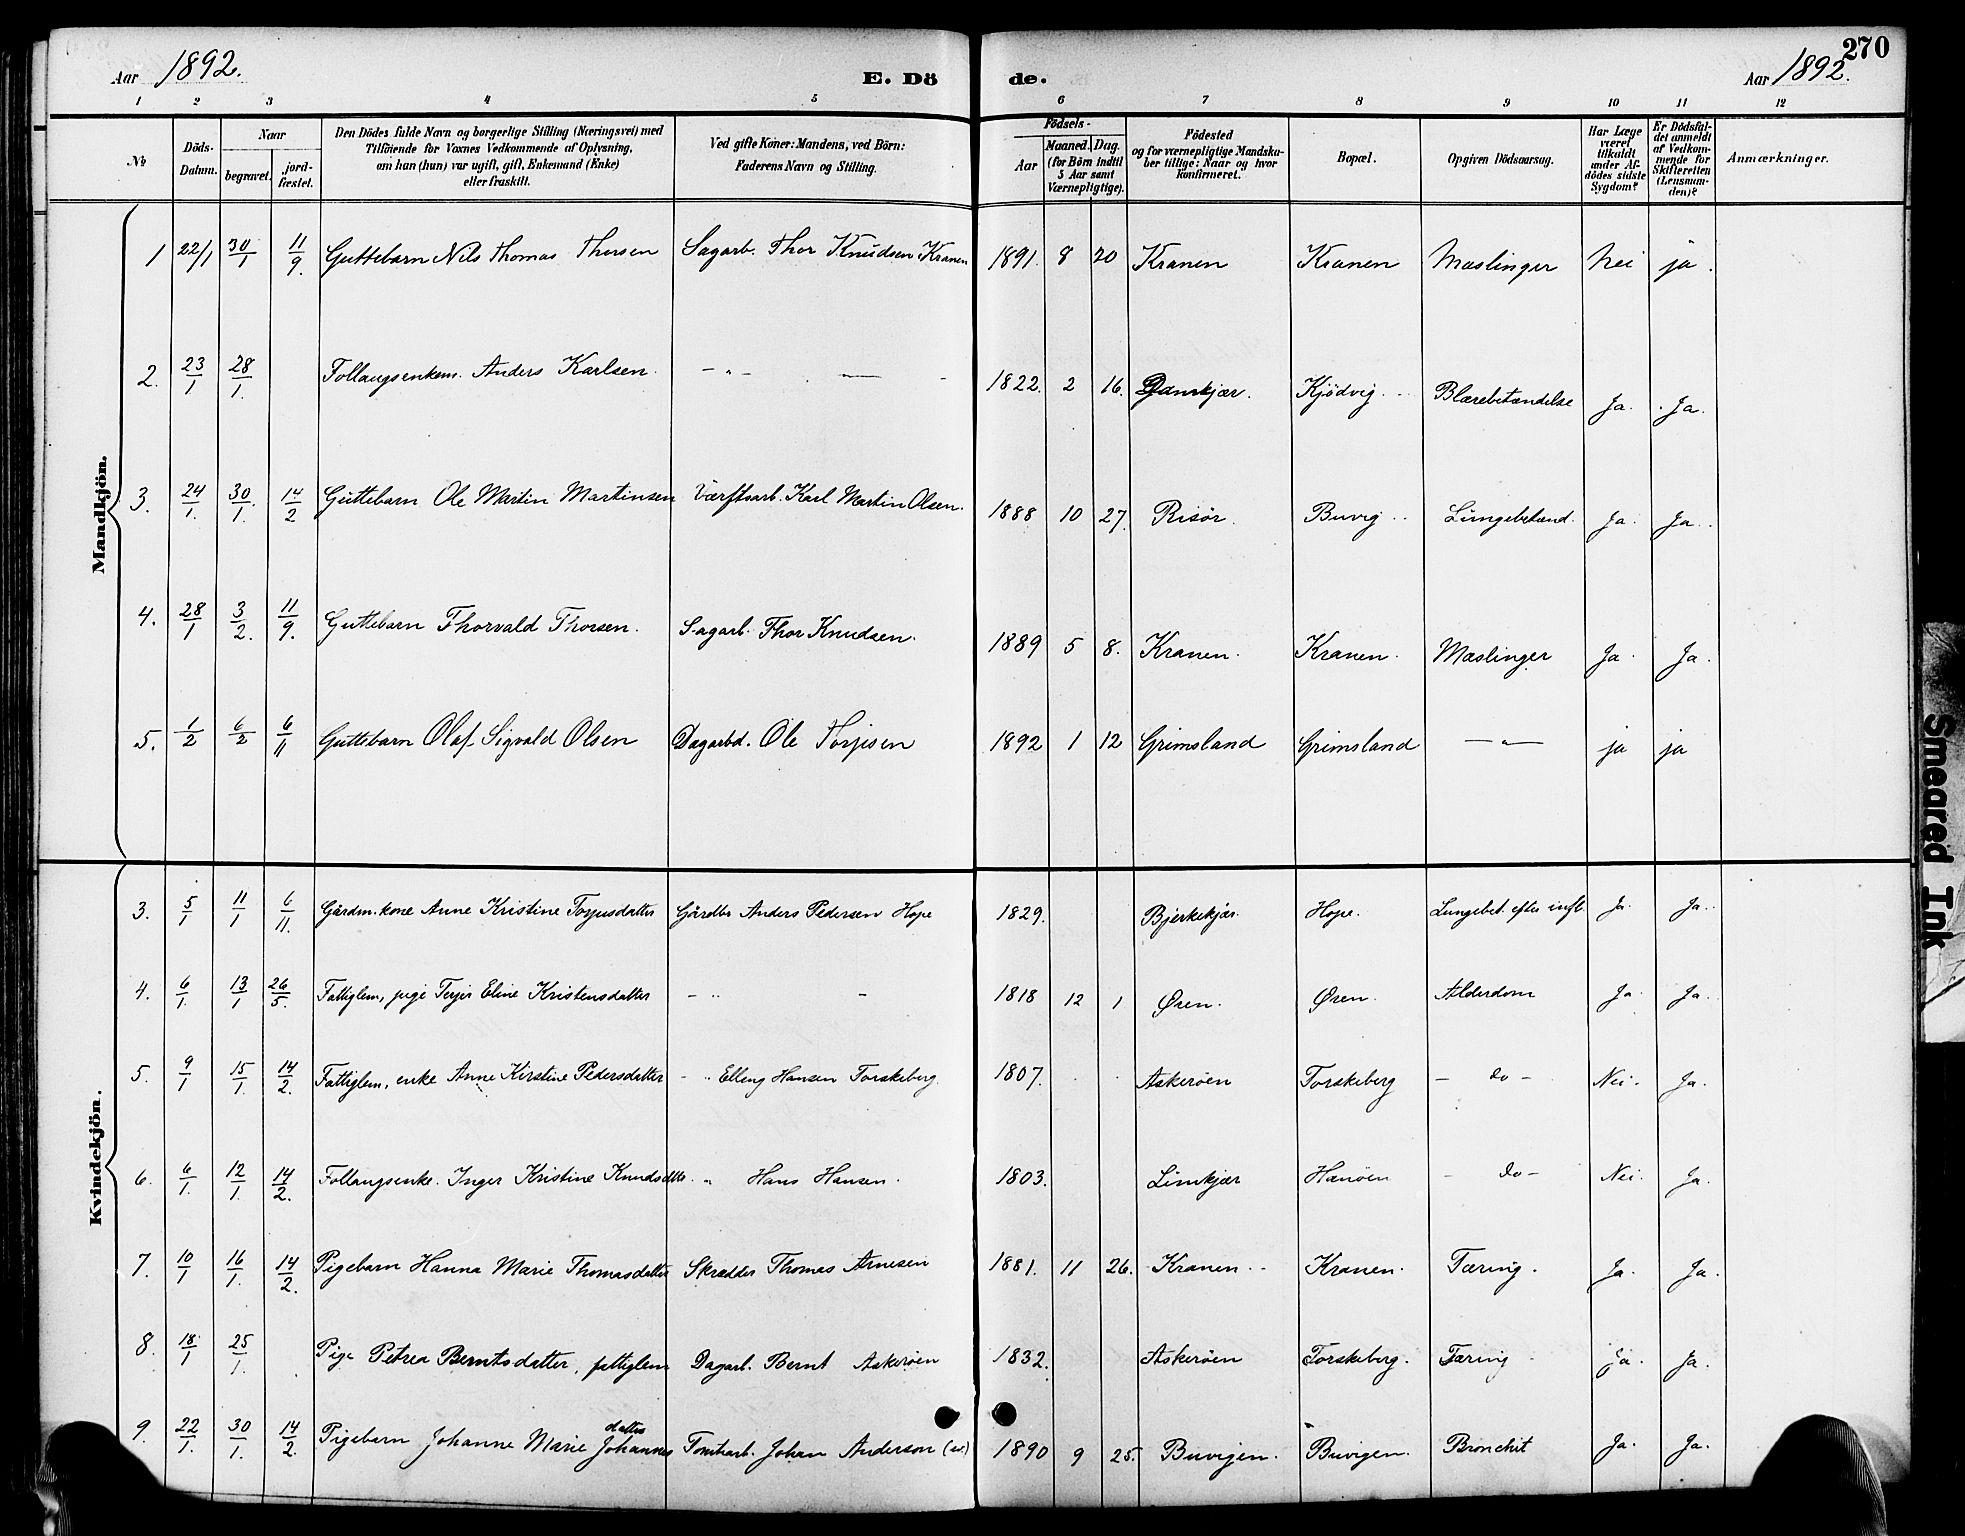 270
Aar 1892.
E. Dö
de.
Aar 1892.
1 2 3 4 5 6 7 8 9 10 11 12
No
Döds-
Datum.
Naar
begravet.
jord-
fæstet.
Den Dödes fulde Navn og borgerlige Stilling (Næringsvei) med
Tilföiende for Voxnes Vedkommende af Oplysning,
om han (hun) var ugift, gift, Enkemand (Enke)
eller fraskilt.
Ved gifte Koner: Mandens, ved Börn:
Faderens Navn og Stilling.
Födsels-
Aar
Maaned. Dag.
(for Börn indtil
5 Aar samt
Værnepligtige).
Födested
og for værnepligtige Mandska-
ber tillige: Naar og hvor
konfirmeret.
Bopæl.
Opgiven Dödsaarsag.
Har Læge
været
tilkaldt
under Af-
dödes sidste
Sygdom?
Er Dödsfal-
det anmeldt
af Vedkom-
mende for
Skifteretten
(Lensman-
den)?
Anmærkninger.
Mandkjön.
1 22/1 30/1 11/9. Guttebarn Nils Thomas Thorsen Sagarb. Thor Knudsen Kranen 1891. 8 20 Kranen Kranen Mæslinger Nei ja.
2. 23/1 28/1. Follaugsenkem. Anders Karlsen. — " — — 1822. 2 16. Damkjær. Kjödvig. Blærebetændelse Ja. Ja.
3. 24/1. 30/1. 14/2 Guttebarn Ole Martin Martinsen Værftsarb. Karl Martin Olsen. 1888 10 27. Risör. Buvig Lungebetænd. Ja. Ja.
4. 28/1 3/2. 11/9. Guttebarn Thorvald Thorsen. Sagarb. Thor Knudsen. 1889 5 8. Kranen. Kranen. Mæslinger Ja. Ja.
5. 1/2 6/2 6/11 Guttebarn Olaf Sigvald Olsen Dagarbd. Ole Torjusen 1892 1 12 Grimsland Grimsland — " — ja ja
Kvindekjön.
3. 5/1 11/1 6/11. Gårdm. kone Anne Kristine Torjusdatter Gårdbr Anders Pedersen Hope 1829. Bjerkekjær. Hope. Lungebet. efter infl. Ja. Ja.
4. 6/1. 13/1 26/5. Fattiglem, pige Terjer Eline Kristensdatter - " - 1818 12 1 Øren. Øren. Alderdom Ja Ja.
5. 9/1 15/1. 14/2. Fattiglem, enke Anne Kirstine Pedersdatter - " Elling Hansen Torskeberg. 1807. Askeröen Torskeberg - do - Nei. Ja.
6. 6/1. 12/1. 14/2. Follaugsenke. Inger Kristine Knudsdtr. " Hans Hansen. 1803. Limkjær Hanöen - do - Nei. Ja.
7. 10/1 16/1. 14/2. Pigebarn Hanna Marie Thomasdatter Skrædder Thomas Arnesen 1881. 11 26. Kranen Kranen. Tæring. Ja. Ja.
8. 18/1 25/1. Pige Petrea Berntsdatter, fattiglem Dagarb. Bernt Askeröen 1832. Askeröen Torskeberg. Tæring Ja. Ja.
9. 22/1. 30/1. 14/2. Pigebarn Johanne Marie Johannesdatter Tomtearb. Johan Anderson 1890 9 25. Buvigen. Buvigen. Bronchit Ja. Ja.
Smeared Ink